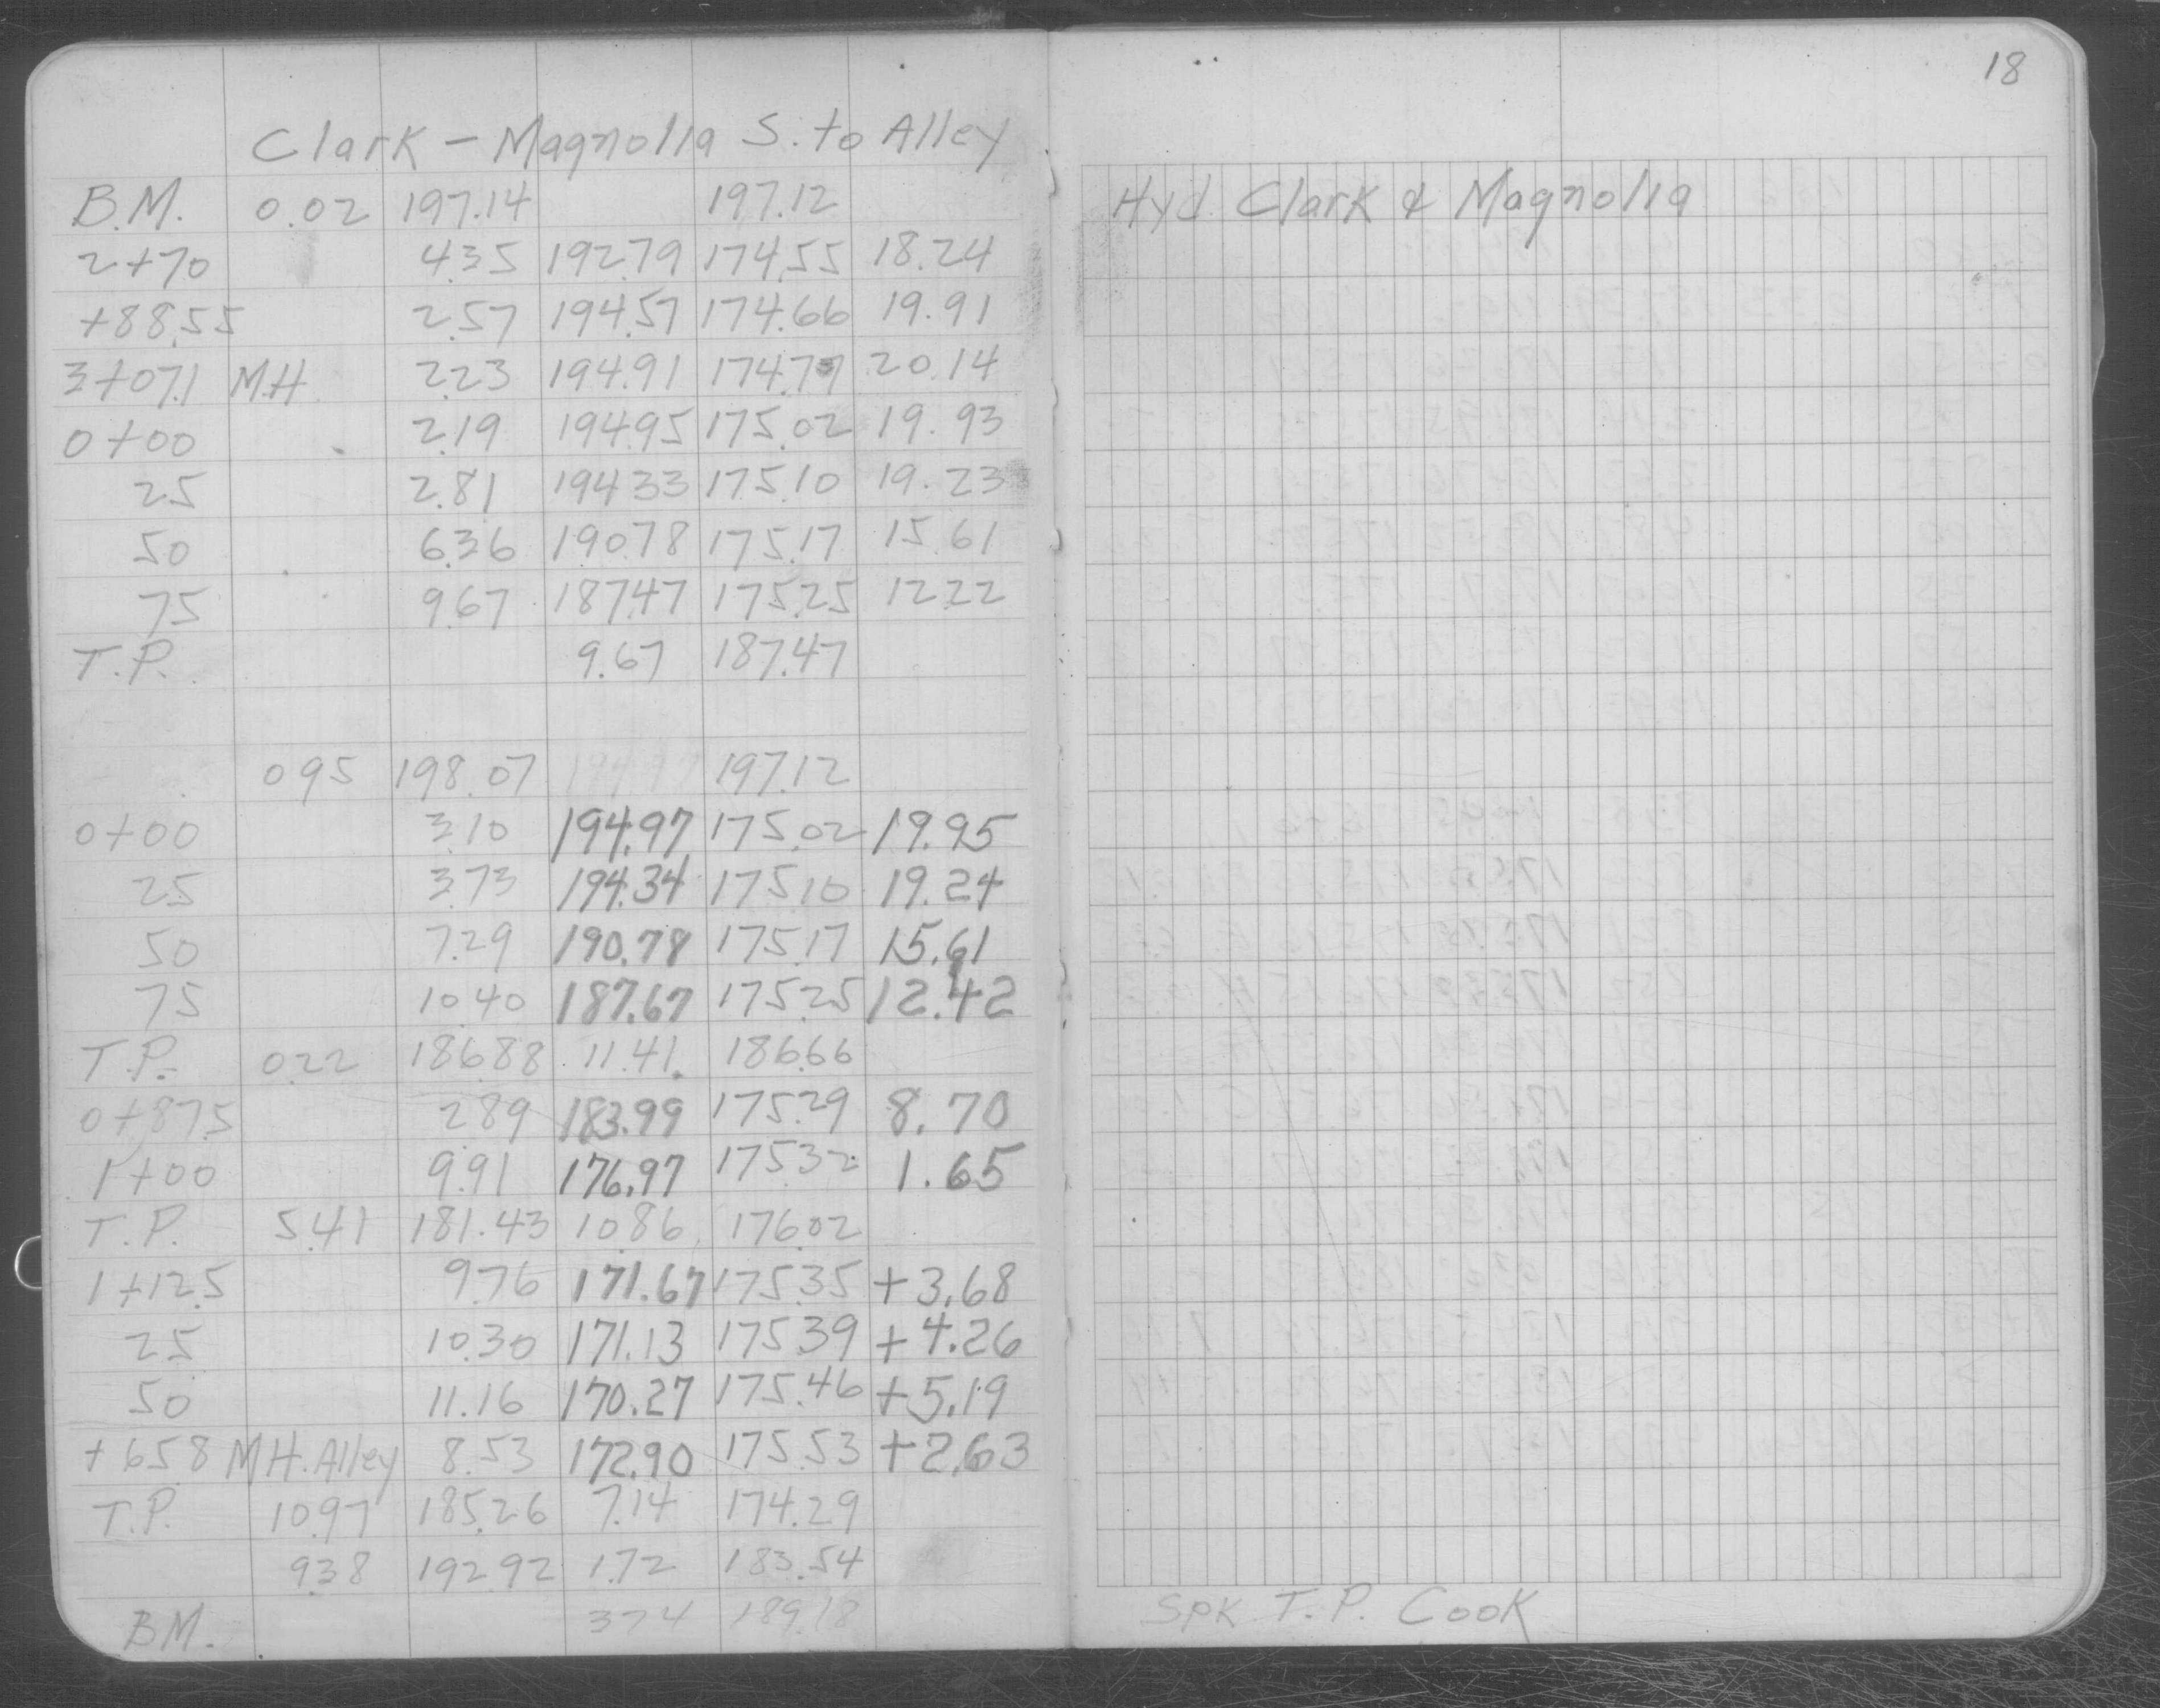 18
Clark - Magnolia S. to Alley
B.M. 0.02 197.14 197.12 Hyd. Clark & Magnolia
2+70 4.35 192.79 174.55 18.24
+88.55 2.57 194.57 174.66 19.91
3+07.1 M.H. 2.23 194.91 174.77 20.14
0+00 2.19 194.95 175.02 19.93
25 2.81 194.33 175.10 19.23
50 6.36 190.78 175.17 15.61
75 9.67 187.47 175.25 12.22
T.P. 9.67 187.47
0.95 198.07 197.12
0+00 3.10 194.97 175.02 19.95
25 3.73 194.34 175.10 19.24
50 7.29 190.78 175.17 15.61
75 10.40 187.67 175.25 12.42
T.P. 0.22 186.88 11.41 186.66
0+87.5 2.89 183.99 175.29 8.70
1+00 9.91 176.97 175.32 1.65
T.P. 5.41 181.43 10.86 176.02
1+12.5 9.76 171.67 175.35 +3.68
25 10.30 171.13 175.39 +4.26
50 11.16 170.27 175.46 +5.19
+65.8 M.H. Alley 8.53 172.90 175.53 +2.63
T.P. 10.97 185.26 7.14 174.29
9.38 192.92 1.72 183.54
B.M. 3.74 189.18 Spk T.P. Cook